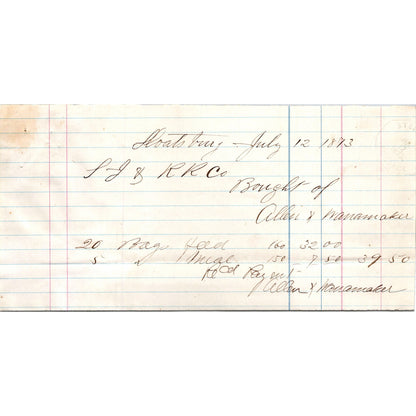 Sloatsburg July 12 1873
S J & R R Co
Bought of
Allen & Wanamaker
20 Bag feed 160 32 00
5 " Meal 150 7 50 39 50
Recd Payent
Allen & Wanamaker